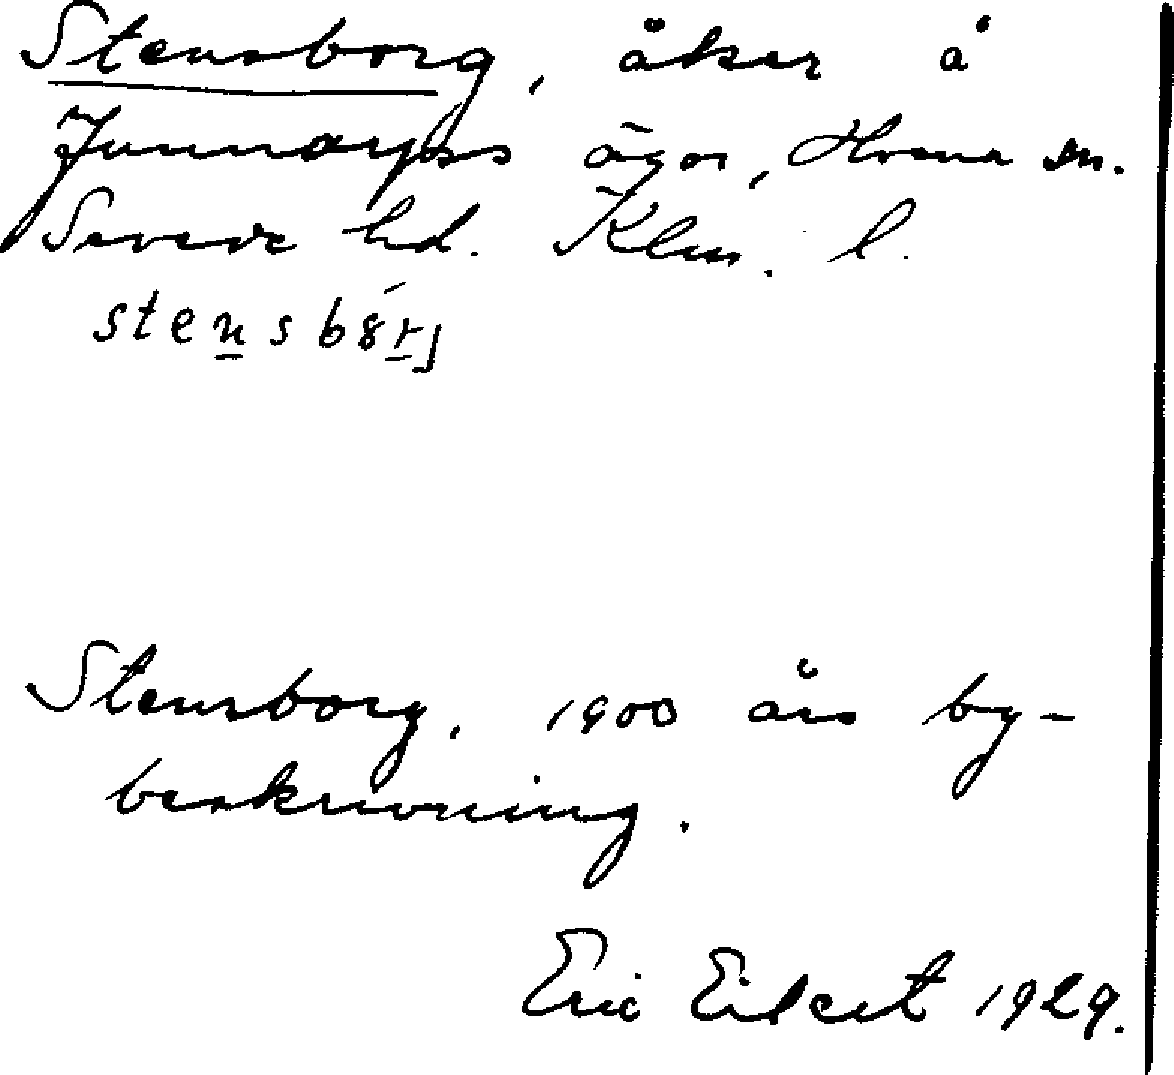 Stensborg, åker å
Junnarps ägor, Hvena sn.
Sevede hd. Klm. l.
Stensborg, 1900 års by-
beskrivning.
Eric Elkert 1929.